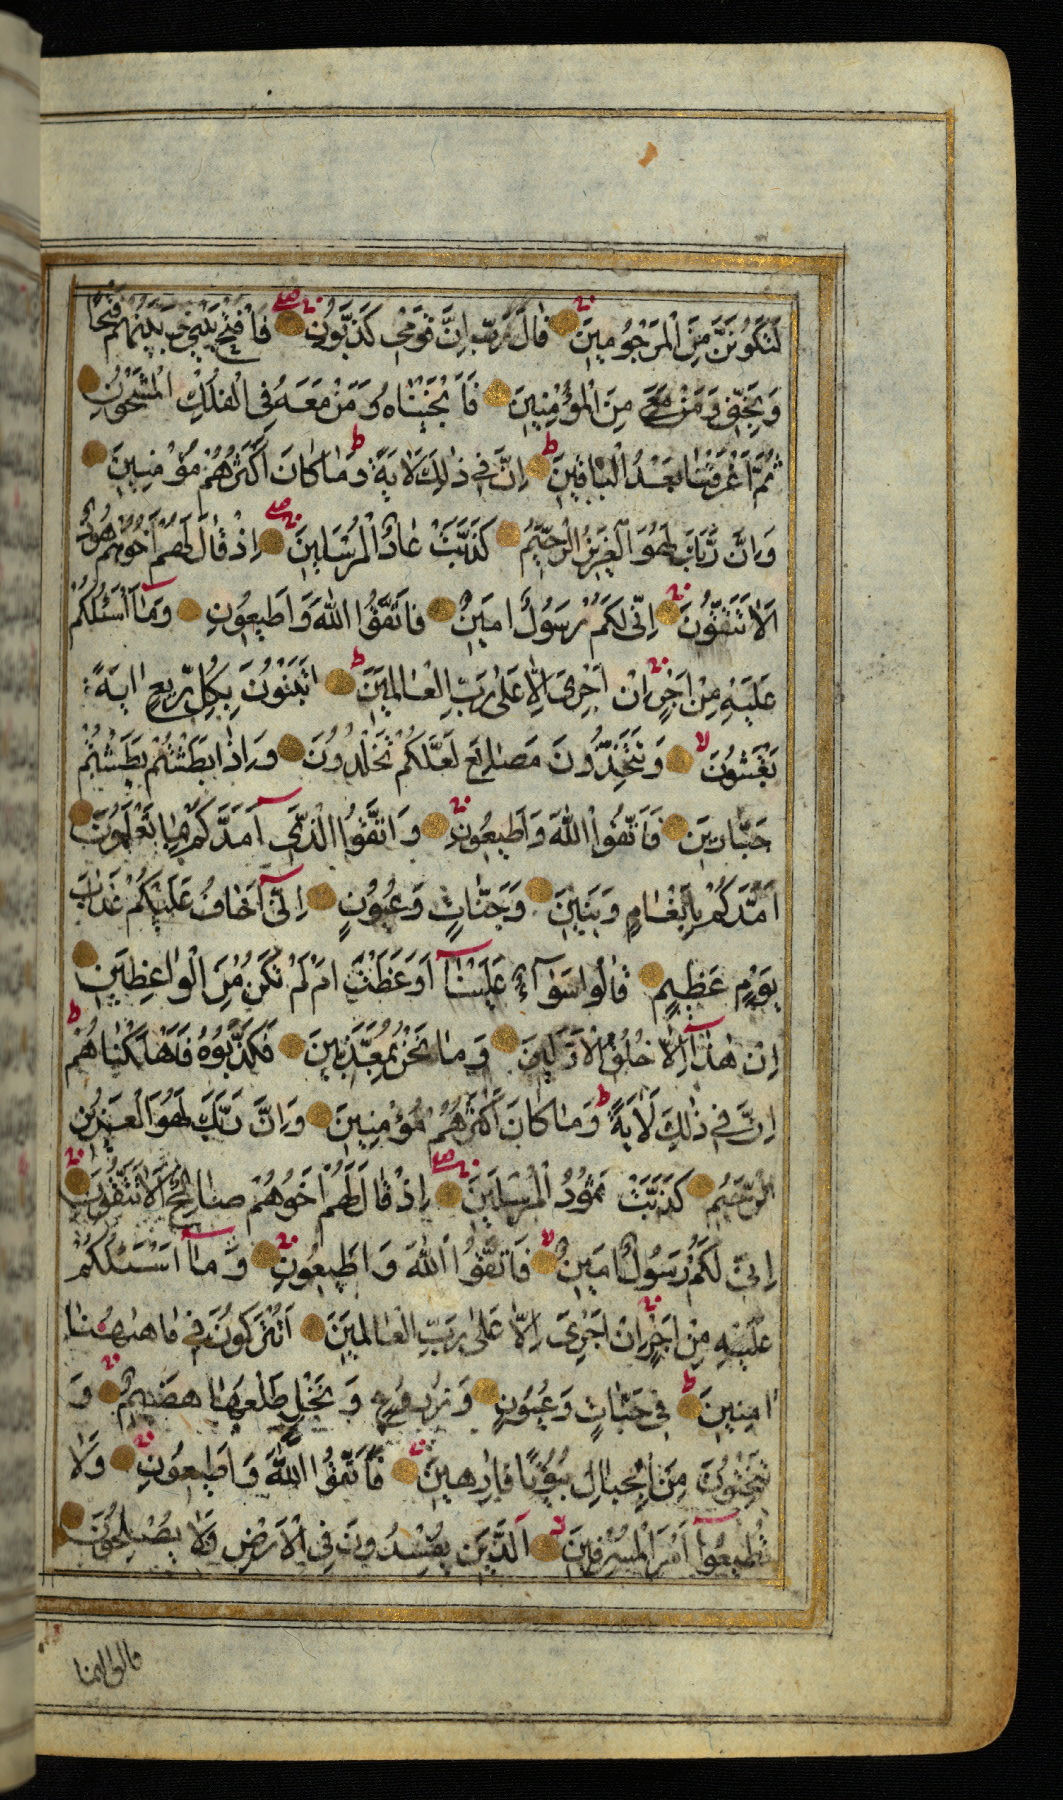 لَتَكُونَنَّ مِنَ الْمَرْجُومِينَ قَالَ رَبِّ اِنَّ قَوْمِى كَذَّبُونِ فَافْتَحْ بَيْنِى وَبَيْنَهُمْ فَتْحًا
وَنَجِّنِى وَمَنْ مَعِىَ مِنَ الْمُؤْمِنِينَ فَاَنْجَيْنَاهُ وَمَنْ مَعَهُ فِى الْفُلْكِ الْمَشْحُونِ
ثُمَّ اَغْرَقْنَا بَعْدُ الْبَاقِينَ ط اِنَّ فِى ذٰلِكَ لَاٰيَةً ط وَمَا كَانَ اَكْثَرُهُمْ مُؤْمِنِينَ
وَاِنَّ رَبَّكَ لَهُوَ الْعَزِيزُ الرَّحِيمُ كَذَّبَتْ عَادُ الْمُرْسَلِينَ اِذْ قَالَ لَهُمْ اَخُوهُمْ هُودٌ
اَلَا تَتَّقُونَ اِنِّى لَكُمْ رَسُولٌ اَمِينٌ فَاتَّقُوا اللّٰهَ وَاَطِيعُونِ وَمَا اَسْئَلُكُمْ
عَلَيْهِ مِنْ اَجْرٍ اِنْ اَجْرِىَ اِلَّا عَلٰى رَبِّ الْعَالَمِينَ ط اَتَبْنُونَ بِكُلِّ رِيعٍ اٰيَةً
تَعْبَثُونَ لا وَتَتَّخِذُونَ مَصَانِعَ لَعَلَّكُمْ تَخْلُدُونَ وَاِذَا بَطَشْتُمْ بَطَشْتُمْ
جَبَّارِينَ فَاتَّقُوا اللّٰهَ وَاَطِيعُونِ وَاتَّقُوا الَّذِى اَمَدَّكُمْ بِمَا تَعْلَمُونَ
اَمَدَّكُمْ بِاَنْعَامٍ وَبَنِينَ وَجَنَّاتٍ وَعُيُونٍ اِنِّى اَخَافُ عَلَيْكُمْ عَذَابَ
يَوْمٍ عَظِيمٍ قَالُوا سَوَاءٌ عَلَيْنَا اَوَعَظْتَ اَمْ لَمْ تَكُنْ مِنَ الْوَاعِظِينَ
اِنْ هٰذَا اِلَّا خُلُقُ الْاَوَّلِينَ وَمَا نَحْنُ بِمُعَذَّبِينَ فَكَذَّبُوهُ فَاَهْلَكْنَاهُمْ ط
اِنَّ فِى ذٰلِكَ لَاٰيَةً ط وَمَا كَانَ اَكْثَرُهُمْ مُؤْمِنِينَ وَاِنَّ رَبَّكَ لَهُوَ الْعَزِيزُ
الرَّحِيمُ كَذَّبَتْ ثَمُودُ الْمُرْسَلِينَ اِذْ قَالَ لَهُمْ اَخُوهُمْ صَالِحٌ اَلَا تَتَّقُونَ
اِنِّى لَكُمْ رَسُولٌ اَمِينٌ لا فَاتَّقُوا اللّٰهَ وَاَطِيعُونِ وَمَا اَسْئَلُكُمْ
عَلَيْهِ مِنْ اَجْرٍ اِنْ اَجْرِىَ اِلَّا عَلٰى رَبِّ الْعَالَمِينَ اَتُتْرَكُونَ فِى مَا هٰهُنَا
اٰمِنِينَ لا فِى جَنَّاتٍ وَعُيُونٍ وَزُرُوعٍ وَنَخْلٍ طَلْعُهَا هَضِيمٌ وَ
تَنْحِتُونَ مِنَ الْجِبَالِ بُيُوتًا فَارِهِينَ فَاتَّقُوا اللّٰهَ وَاَطِيعُونِ وَلَا
تُطِيعُوا اَمْرَ الْمُسْرِفِينَ لا اَلَّذِينَ يُفْسِدُونَ فِى الْاَرْضِ وَلَا يُصْلِحُونَ
قالوا انما